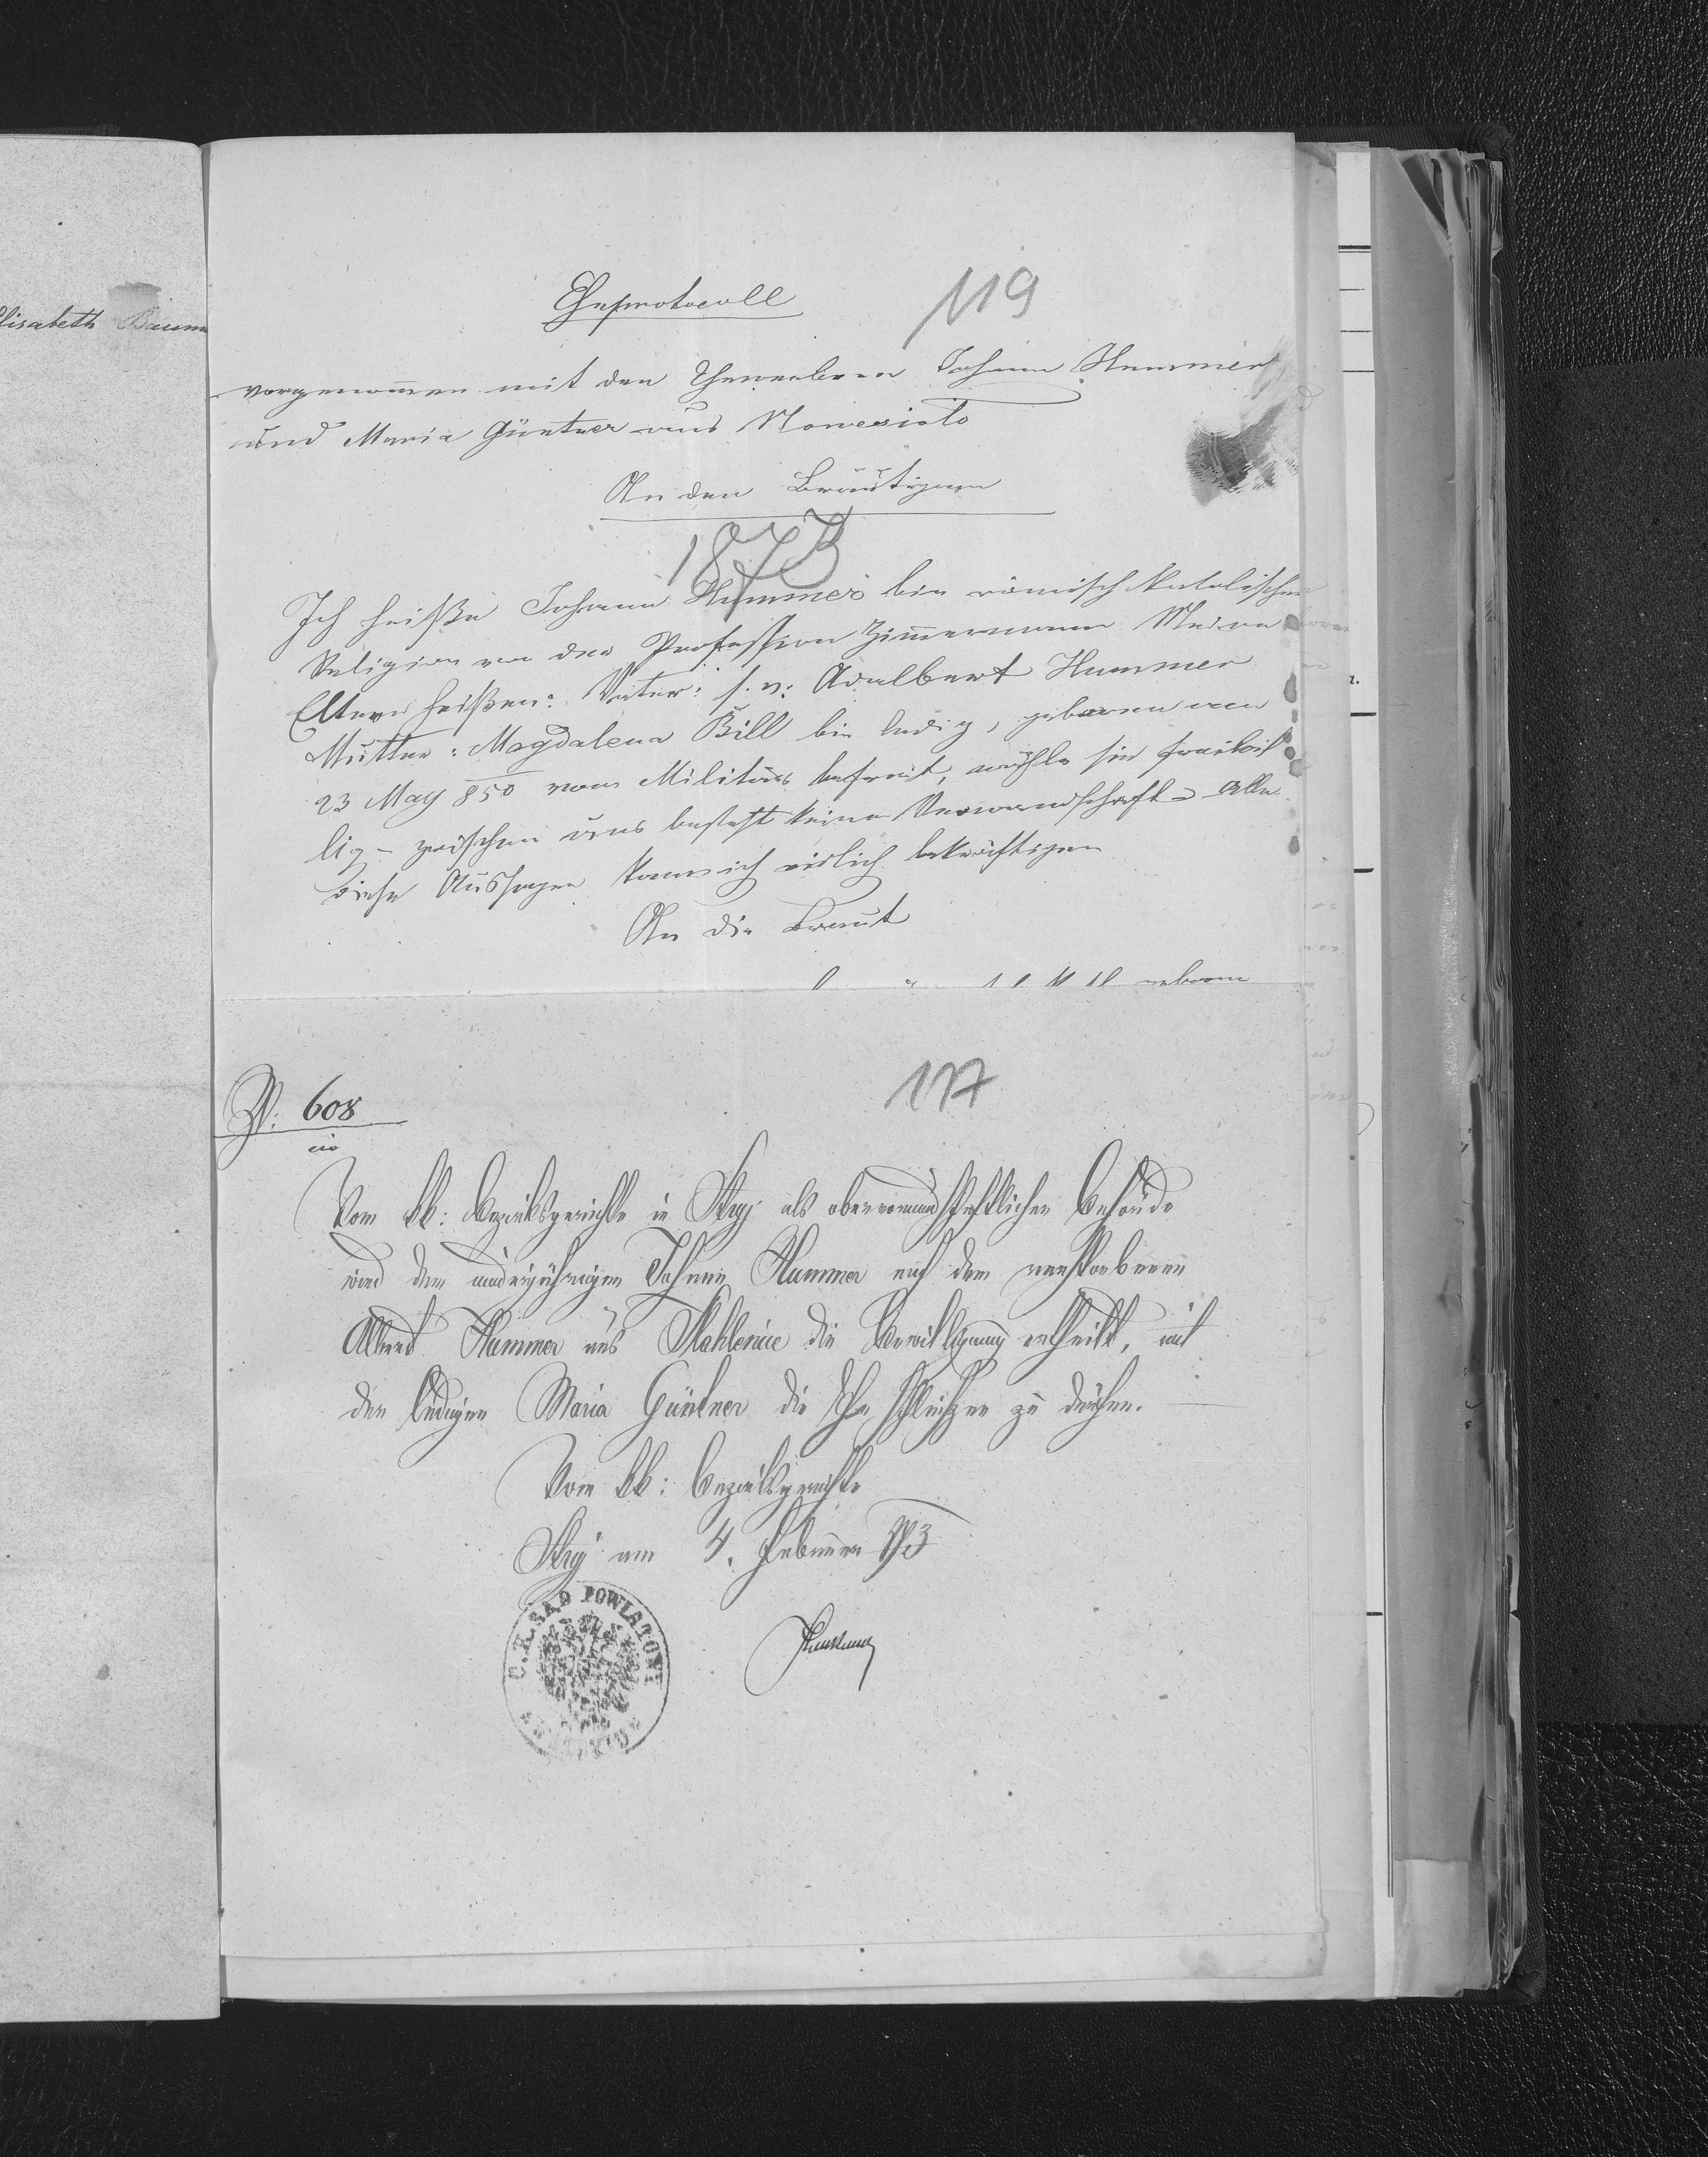 lisabeth Baum
Eheprotocoll
119
vorgenommen mit den Ehewerbern Johann Hummer
und Maria Güntner aus Nowesioło
An den Bräutigam
1873
Ich heiße Johann Hummer bin römisch katolischer
Religion von der Profession Zimmermann Meine
Eltern heißen: Vater: s. v: Adalbert Hummer
Mutter: Magdalena Bill bin ledig, geboren am
23 May 850 vom Militär befreit, wähle sie freiwil
lig – zwischen uns besteht keine Verwandschaft – Alle
diese Aussagen kann ich eidlich bekräftigen
An die Braut
117
Z: 608
civ
Vom kk: Bezirksgerichte in Stryj als obervormundschaftlicher Behörde
wird dem minderjährigen Johann Hummer nach dem verstorbenen
Albert Hummer aus die Bewilligung ertheilt, mit
der ledigen Maria Güntner die Ehe schließen zu dürfen.
Vom kk: Bezirksgerichte
Stryj am 4. Februar 873
C. K. SĄD POWIATOWY